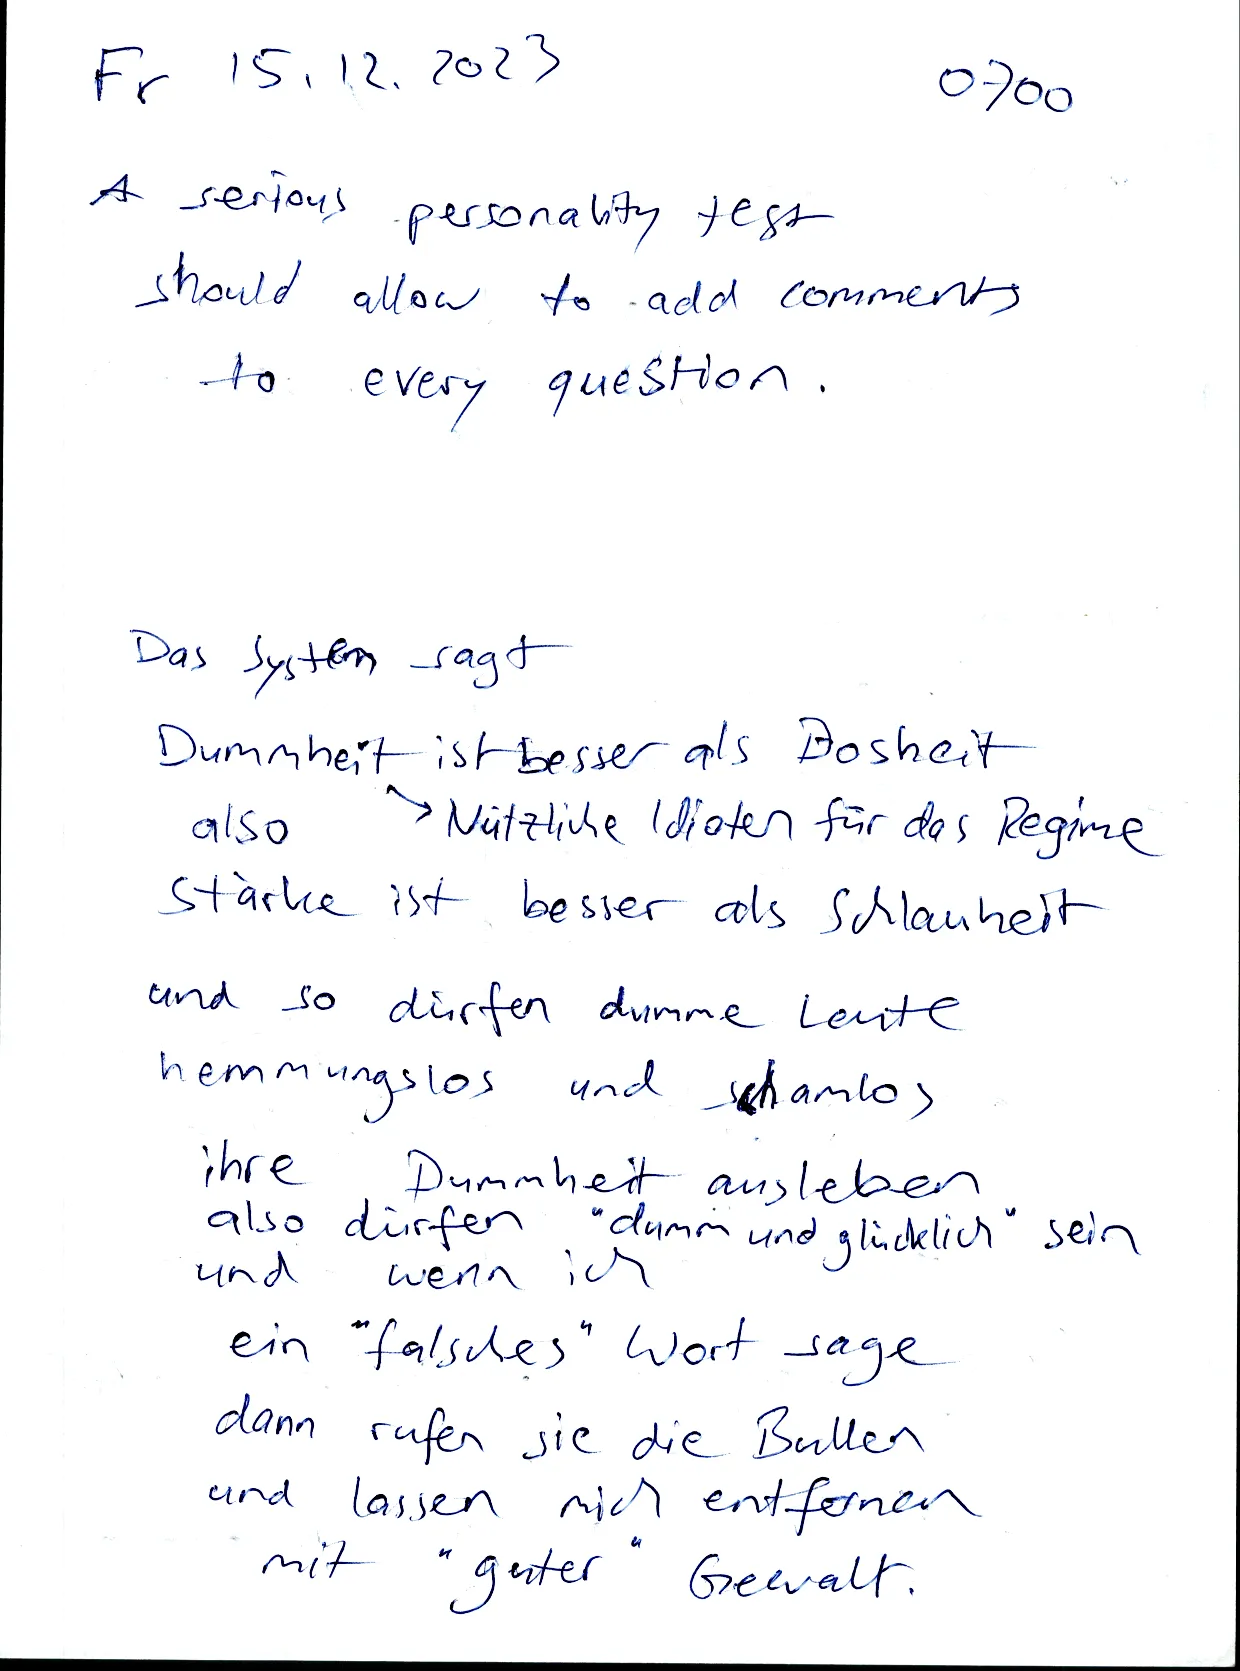 Fr 15.12.2023 0700
A serious personality test
should allow to add comments
to every question.
Das System sagt
Dummheit ist besser als Bosheit
also → Nützliche Idioten für das Regime
Stärke ist besser als Schlauheit
und so dürfen dumme Leute
hemmungslos und schamlos
ihre Dummheit ausleben
also dürfen "dumm und glücklich" sein
und wenn ich
ein "falsches" Wort sage
dann rufen sie die Bullen
und lassen mich entfernen
mit "guter" Gewalt.